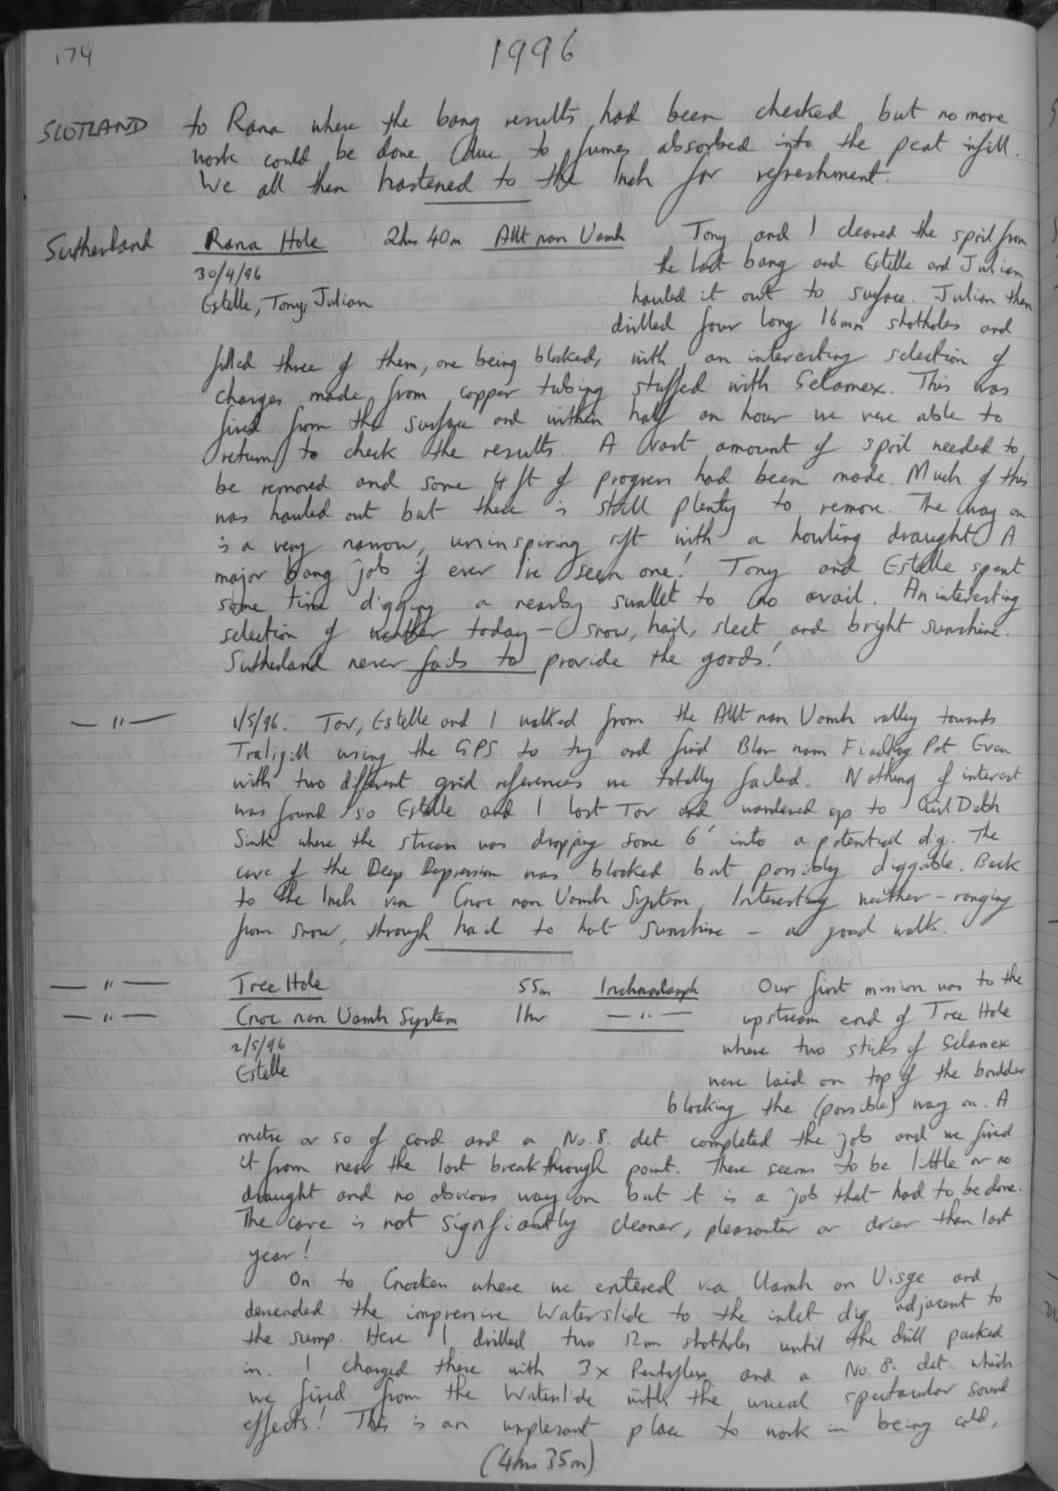 174
1996
SCOTLAND to Rana where the bang results had been checked but no more
work could be done due to fumes absorbed into the peat infill.
We all then hastened to the Inch for refreshment.
Sutherland Rana Hole 2hrs 40m Allt nan Uamh Tony and I cleared the spoil from
30/4/96 the last bang and Estelle and Julian
Estelle, Tony, Julian hauled it out to surface. Julian then
drilled four long 16mm shotholes and
filled three of them, one being blocked, with an interesting selection of
charges made from copper tubing stuffed with Gelamex. This was
fired from the surface and within half an hour we were able to
return to check the results. A vast amount of spoil needed to
be removed and some 4 ft of progress had been made. Much of this
was hauled out but there is still plenty to remove. The way on
is a very narrow, uninspiring rift with a howling draught. A
major bang job if ever I've seen one! Tony and Estelle spent
some time digging a nearby swallet to no avail. An interesting
selection of weather today - snow, hail, sleet and bright sunshine.
Sutherland never fails to provide the goods!
— " — 1/5/96. Tav, Estelle and I walked from the Allt nan Uamh valley towards
Traligill using the GPS to try and find Blar nam Fiadhag Pot. Even
with two different grid references we totally failed. Nothing of interest
was found so Estelle and I lost Tav and wandered up to
Sink where the stream was dropping some 6' into a potential dig. The
cave of the Deep Depression was blocked but possibly diggable. Back
to the Inch via Cnoc nan Uamh System. Interesting weather - ranging
from snow, through hail to hot sunshine - a good walk.
— " — Tree Hole 55m Inchnadamph Our first mission was to the
— " — Cnoc nan Uamh System 1hr — " — upstream end of Tree Hole
2/5/96 where two sticks of Gelamex
Estelle were laid on top of the boulder
blocking the (possible) way on. A
metre or so of cord and a No. 8. det completed the job and we fired
it from near the last breakthrough point. There seems to be little or no
draught and no obvious way on but it is a job that had to be done.
The cave is not significantly cleaner, pleasanter or drier than last
year!
On to Cnocken where we entered via Uamh an Uisge and
descended the impressive Waterslide to the inlet dig adjacent to
the sump. Here I drilled two 12mm shotholes until the drill packed
in. I charged these with 3x Pentaflex and a No. 8. det which
we fired from the Waterslide with the usual spectacular sound
effects! This is an unpleasant place to work in being cold,
(4hrs 35m)